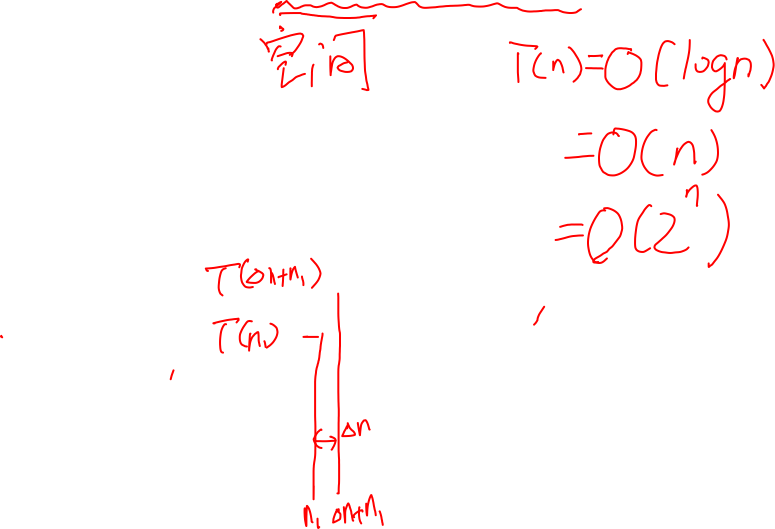 空间
T(n)=O(logn)
=O(n)
=O(2^n)
T(Δn+n₁)
T(n₁)
Δn
n₁ Δn+n₁